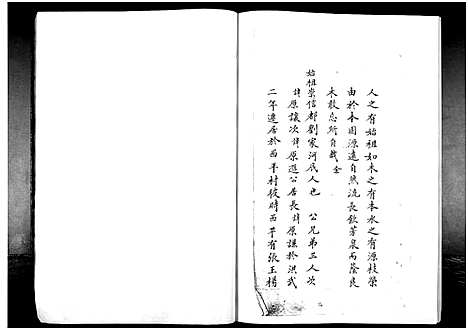 人之有始祖如木之有本水之有源枝榮
由於本固源遠自然流長飲芳泉而蔭良
木敢忘所自哉仝
始祖崇信都劉家河底人也 公兄弟三人次
諱原讓次諱原遜公居長諱原謙於洪武
二年遷居於西平村彼時西平有張王楊